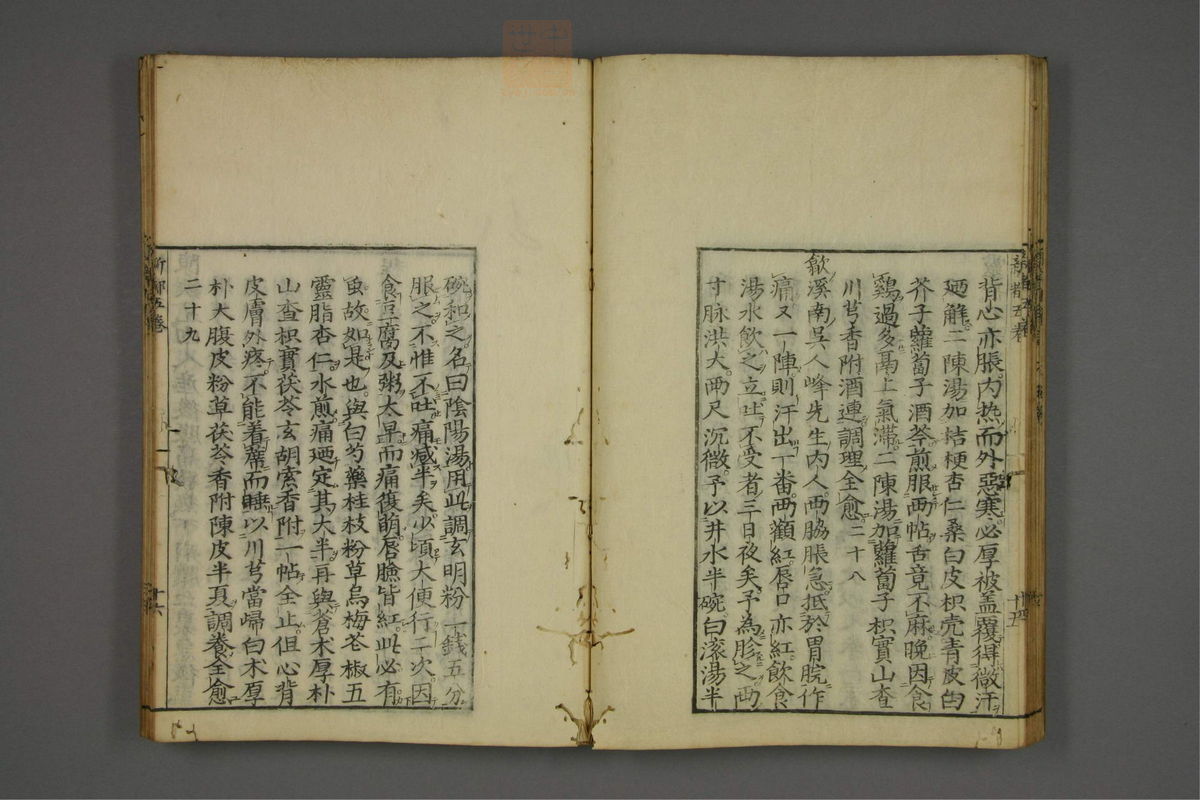 背心亦脹內热而外惡寒必厚被盖覆得微汗
廼觧二陳湯加桔梗杏仁桑白皮枳壳青皮白
芥子蘿蔔子酒芩煎服两帖舌竟不麻晚因食
鷄過多鬲上氣滯二陳湯加蘿蔔子枳實山查
川芎香附酒連調理全愈二十八
歙溪南吳人峰先生内人两脇脹急抵於胃脘作
痛又一陣則汗出一番两顴紅唇口亦紅飲食
湯水飲之立吐不受者三日夜矣予為胗之两
寸脉洪大两尺沉微予以井水半碗白滚湯半
碗和之名曰陰陽湯用此調玄明粉一錢五分
服之不惟不吐痛减半矣少頃大便行二次因
食豆腐及粥太早而痛復萌唇臉皆紅此必有
虫故如是也與白芍藥桂枝粉草烏梅苍椒五
靈脂杏仁水煎痛廼定其大半再與蒼术厚朴
山查枳實茯苓玄胡索香附一帖全止但心背
皮膚外疼不能着蓆而睡以川芎當歸白术厚
朴大腹皮粉草茯苓香附陳皮半夏調養全愈
二十九
新都五卷
十六